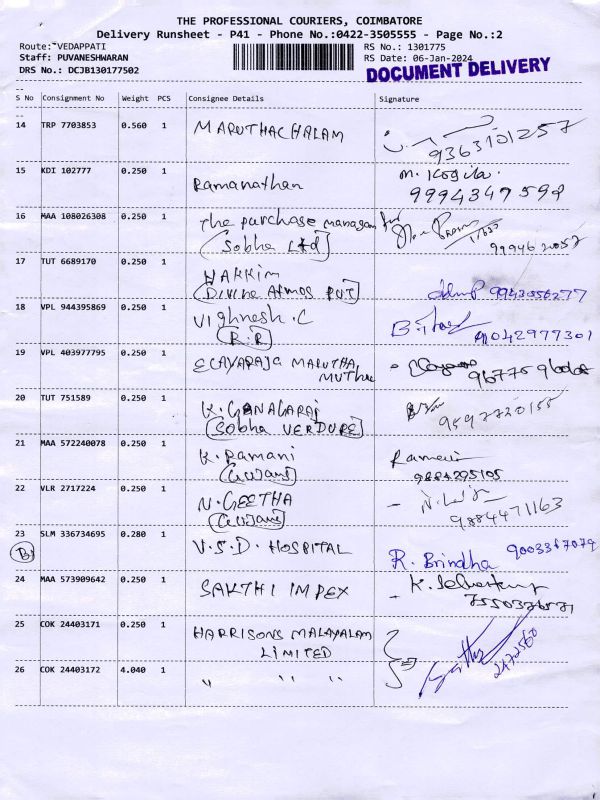 THE PROFESSIONAL COURIERS, COIMBATORE
Delivery Runsheet - P41 - Phone No.:0422-3505555 - Page No.:2
Route: VEDAPPATI
RS No.: 1301775
Staff: PUVANESHWARAN
RS Date: 06-Jan-2024
DRS No.: DCJB130177502
DOCUMENT DELIVERY
S No Consignment No Weight PCS Consignee Details Signature
14 TRP 7703853 0.560 1 MARUTHACHALAM
9363101257
15 KDI 102777 0.250 1 Ramanathan M. Kogila.
9994347598
16 MAA 108026308 0.250 1 The purchase manager
(Sobha Ltd)
17 TUT 6689170 0.250 1 HAKKIM
(Divine Atmos PVT) 9943056277
18 VPL 944395869 0.250 1 Vighnesh.C
(R.R) 9042977301
19 VPL 403977795 0.250 1 ELAYARAJA MARUTHA
MUTHU
20 TUT 751589 0.250 1 K.GANAGARAJ
(Sobha VERDURE) 9597720155
21 MAA 572240078 0.250 1 K.Ramani Ramani
9884295105
22 VLR 2717224 0.250 1 N.GEETHA
9884471163
23 SLM 336734695 0.280 1 V.S.D. HOSPITAL R. Brindha 9003367079
24 MAA 573909642 0.250 1 SAKTHI IMPEX
7550376571
25 COK 24403171 0.250 1 HARRISONS MALAYALAM
LIMITED
2472560
26 COK 24403172 4.040 1 " " "